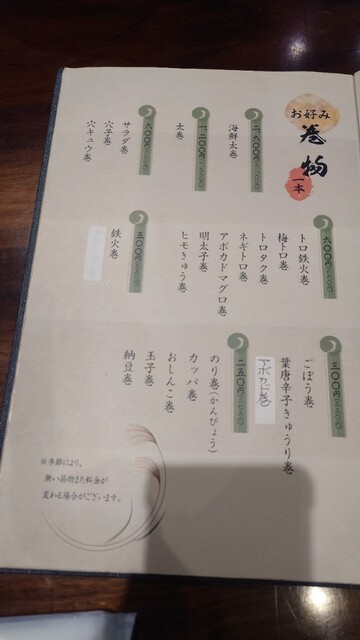 お好み
巻物
一本
海鮮太巻
一、二〇〇円
太巻
六〇〇円
サラダ巻
穴子巻
穴キュウ巻
六〇〇円
トロ鉄火巻
梅トロ巻
トロタク巻
ネギトロ巻
アボカドマグロ巻
明太子巻
ヒモきゅう巻
五〇〇円
鉄火巻
三〇〇円
ごぼう巻
葉唐辛子きゅうり巻
アボカド巻
二五〇円
のり巻(かんぴょう)
カッパ巻
おしんこ巻
玉子巻
納豆巻
※季節により、
無い品物また料金が
変わる場合がございます。